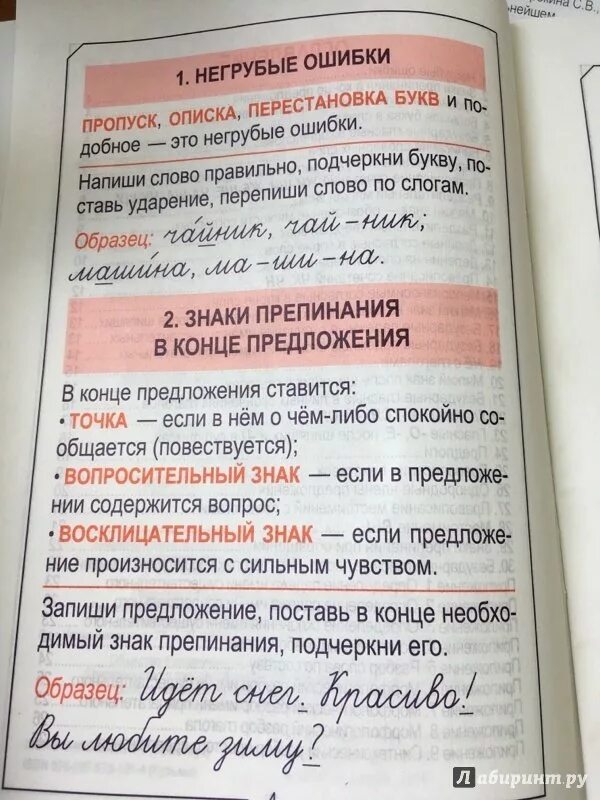 рокина С.В.,
нейшем
1. НЕГРУБЫЕ ОШИБКИ
ПРОПУСК, ОПИСКА, ПЕРЕСТАНОВКА БУКВ и по-
добное — это негрубые ошибки.
Напиши слово правильно, подчеркни букву, по-
ставь ударение, перепиши слово по слогам.
Образец: ча́йник, чай-ник;
маши́на, ма-ши-на.
2. ЗНАКИ ПРЕПИНАНИЯ
В КОНЦЕ ПРЕДЛОЖЕНИЯ
В конце предложения ставится:
• ТОЧКА — если в нём о чём-либо спокойно со-
общается (повествуется);
• ВОПРОСИТЕЛЬНЫЙ ЗНАК — если в предложе-
нии содержится вопрос;
• ВОСКЛИЦАТЕЛЬНЫЙ ЗНАК — если предложе-
ние произносится с сильным чувством.
Запиши предложение, поставь в конце необхо-
димый знак препинания, подчеркни его.
Образец: Идёт снег. Красиво!
Вы любите зиму?
Лабиринт.ру